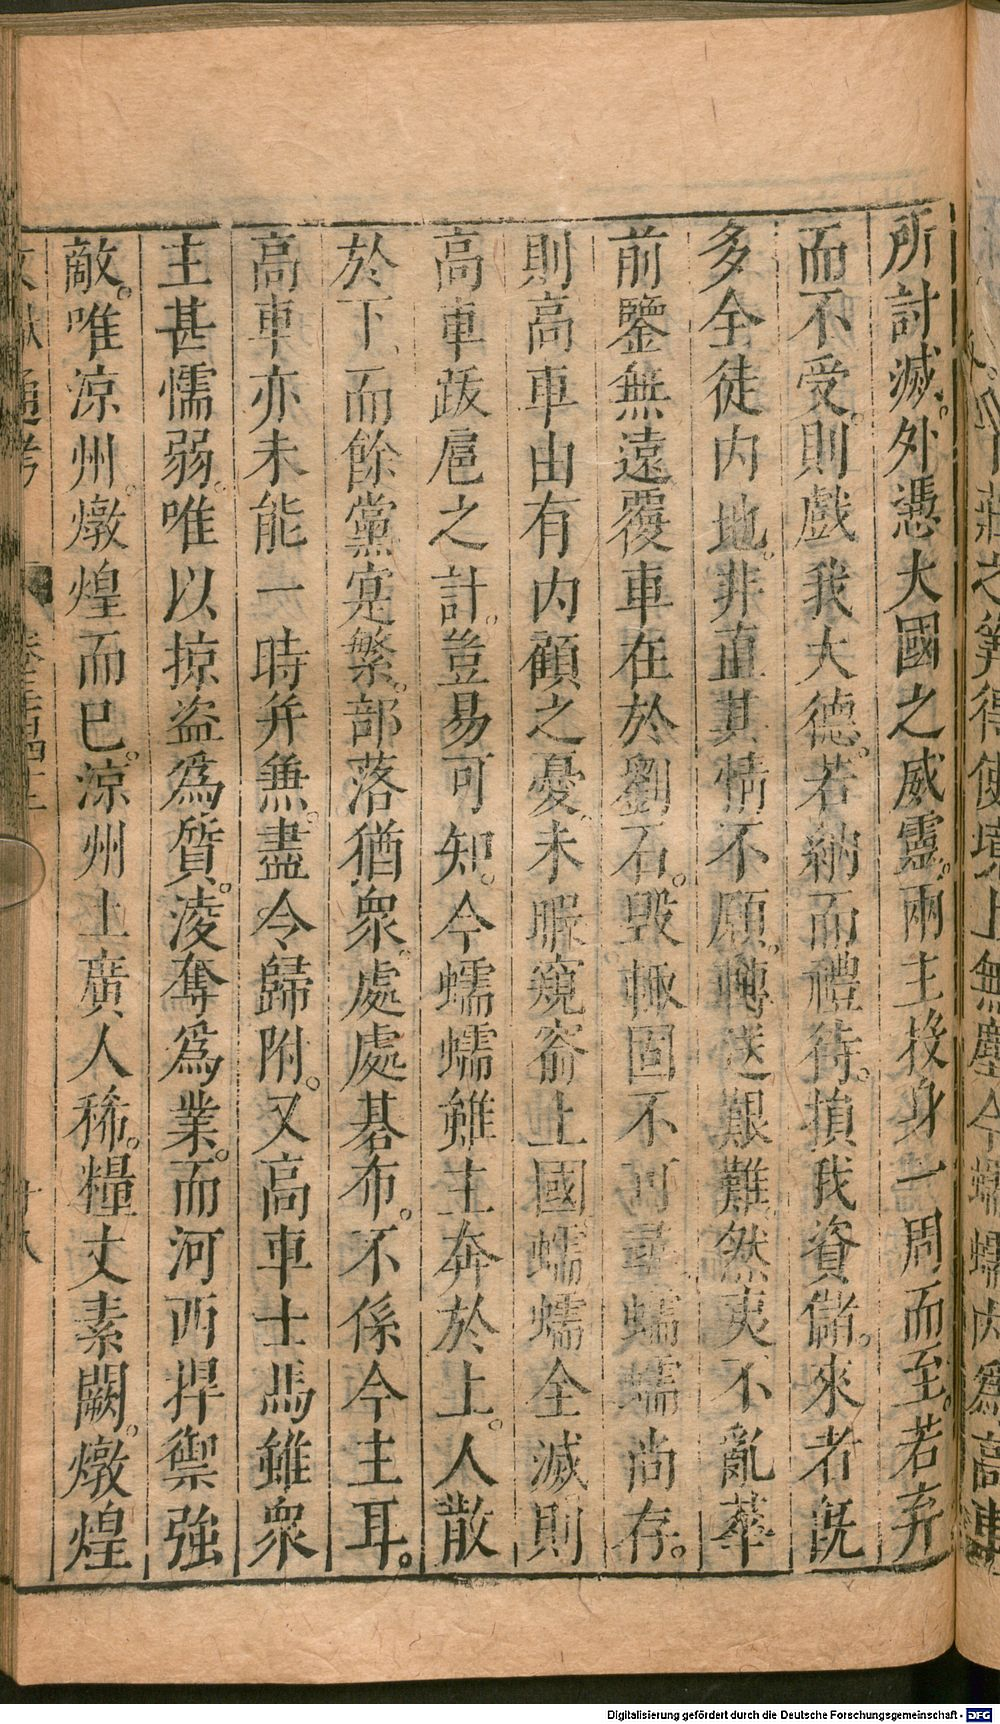 莊之筭得使境上無塵今蠕蠕內爲高車
所討滅。外憑大國之威靈。兩主投身一周而至。若弃
而不受。則戲我大德。若納而禮待。損我資儲。來者旣
多全徒内地。非直其情不願。轉送艱難然夷不亂華
前鑒無遠覆車在於劉石。毀轍固不可尋。蠕蠕尚存。
則高車由有内顧之憂。未暇窺窬上國。蠕蠕全滅則
高車跋扈之計。豈易可知。今蠕蠕雖主奔於上。人散
於下、而餘黨寔繁。部落猶衆。處處碁布。不係今主耳。
高車亦未能一時并無。盡令歸附。又高車士馬雖衆
主甚懦弱。唯以掠盜爲質。淩奪爲業。而河西捍禦強
敵。唯涼州。燉煌而已。涼州土廣人稀。糧丈素闕。燉煌
文獻通考
Digitalisierung gefördert durch die Deutsche Forschungsgemeinschaft - DFG